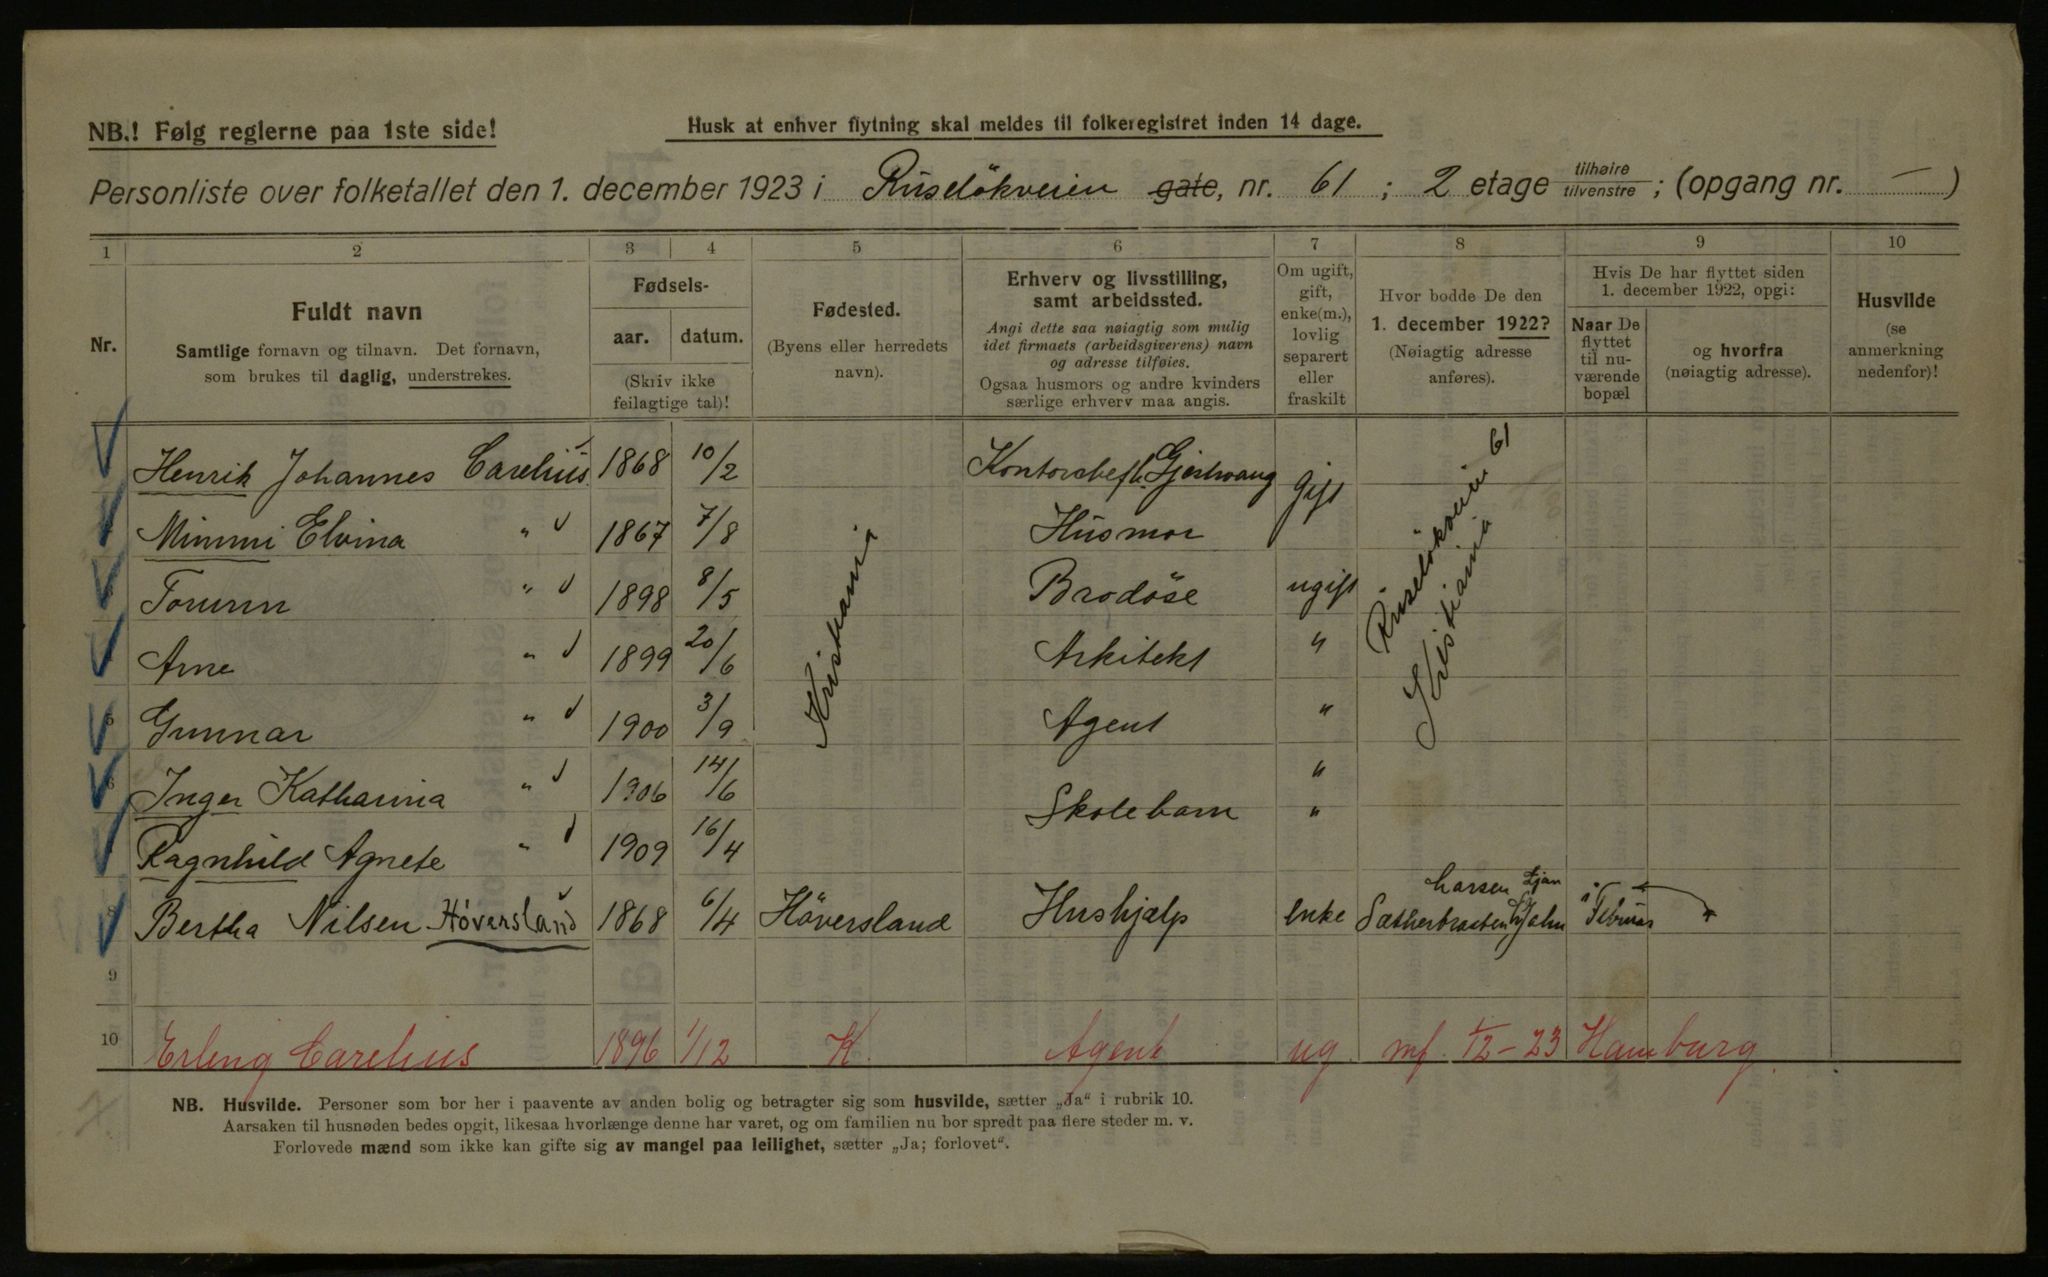 NB.! Følg reglerne paa 1ste side!
Husk at enhver flytning skal meldes til folkeregistret inden 14 dage.
Personliste over folketallet den 1. december 1923 i Ruseløkveien gate, nr. 61 ; 2 etage tilhøire/tilvenstre ; (opgang nr. — )
1 2 3 4 5 6 7 8 9 10
Nr.
Fuldt navn
Samtlige fornavn og tilnavn. Det fornavn,
som brukes til daglig, understrekes.
Fødsels-
aar. datum.
(Skriv ikke
feilagtige tal)!
Fødested.
(Byens eller herredets
navn).
Erhverv og livsstilling,
samt arbeidssted.
Angi dette saa nøiagtig som mulig
idet firmaets (arbeidsgiverens) navn
og adresse tilføies.
Ogsaa husmors og andre kvinders
særlige erhverv maa angis.
Om ugift,
gift,
enke(m.),
lovlig
separert
eller
fraskilt
Hvor bodde De den
1. december 1922?
(Nøiagtig adresse
anføres).
Hvis De har flyttet siden
1. december 1922, opgi:
Naar De
flyttet
til nu-
værende
bopæl
og hvorfra
(nøiagtig adresse).
Husvilde
(se
anmerkning
nedenfor)!
Henrik Johannes Carelius 1868 10/2 Kontorchef Gjestvang gift
Mimmi Elvina " 1867 7/8 Husmor
Torunn " 1898 8/5 Brodøse ugift
Arne " 1899 20/6 Arkitekt "
5 Gunnar " 1900 3/9 Agent "
6 Inger Katharina " 1906 14/6 "
Ragnhild Agnete " 1909 16/4 Skolebarn "
Kristiania
Ruseløkveien 61
Kristiania
Larsen Ljan
Bertha Nilsen Höversland 1868 6/4 Höversland Hushjælp enke Februar
9
10 Erling Carelius 1896 1/12 K. Agent ug. mf. 1/12-23 Hamburg.
NB. Husvilde. Personer som bor her i paavente av anden bolig og betragter sig som husvilde, sætter „Ja“ i rubrik 10.
Aarsaken til husnøden bedes opgit, likesaa hvorlænge denne har varet, og om familien nu bor spredt paa flere steder m. v.
Forlovede mænd som ikke kan gifte sig av mangel paa leilighet, sætter „Ja; forlovet“.